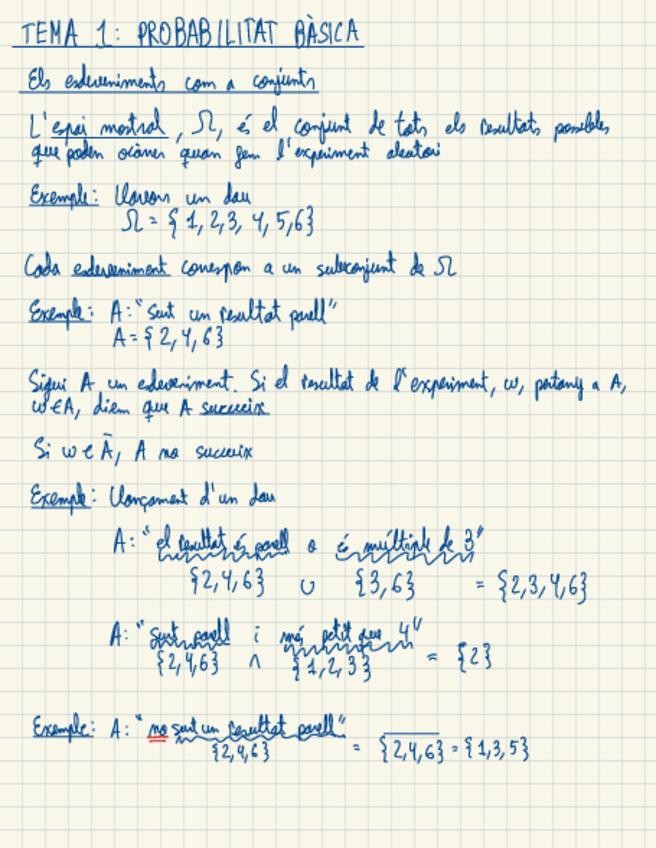 TEMA 1: PROBABILITAT BÀSICA
Els esdeveniments com a conjunts
L'espai mostral, Ω, és el conjunt de tots els resultats possibles
que poden ocórrer quan fem l'experiment aleatori
Exemple: Llavors un dau
Ω = { 1, 2, 3, 4, 5, 6}
Cada esdeveniment correspon a un subconjunt de Ω
Exemple: A: "Surt un resultat parell"
A = { 2, 4, 6}
Sigui A un esdeveniment. Si el resultat de l'experiment, ω, pertany a A,
ω ∈ A, diem que A succeeix
Si ω ∈ Ā, A no succeeix
Exemple: Llançament d'un dau
A: "el resultat és parell o és múltiple de 3"
{2, 4, 6} ∪ {3, 6} = {2, 3, 4, 6}
A: "surt parell i més petit que 4"
{2, 4, 6} ∩ {1, 2, 3} = {2}
Exemple: A: "no surt un resultat parell"
{2, 4, 6} = \overline{{2, 4, 6}} = {1, 3, 5}